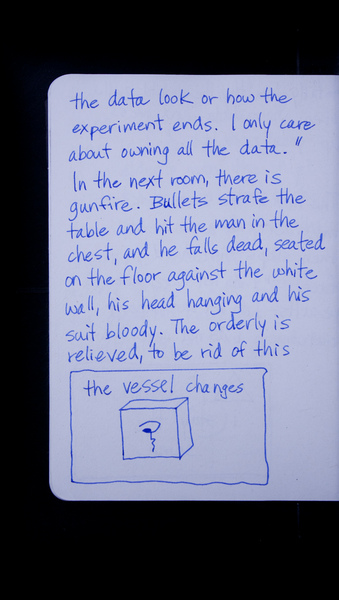 the data look or how the
experiment ends. I only care
about owning all the data."
In the next room, there is
gunfire. Bullets strafe the
table and hit the man in the
chest, and he falls dead, seated
on the floor against the white
wall, his head hanging and his
suit bloody. The orderly is
relieved, to be rid of this
the vessel changes